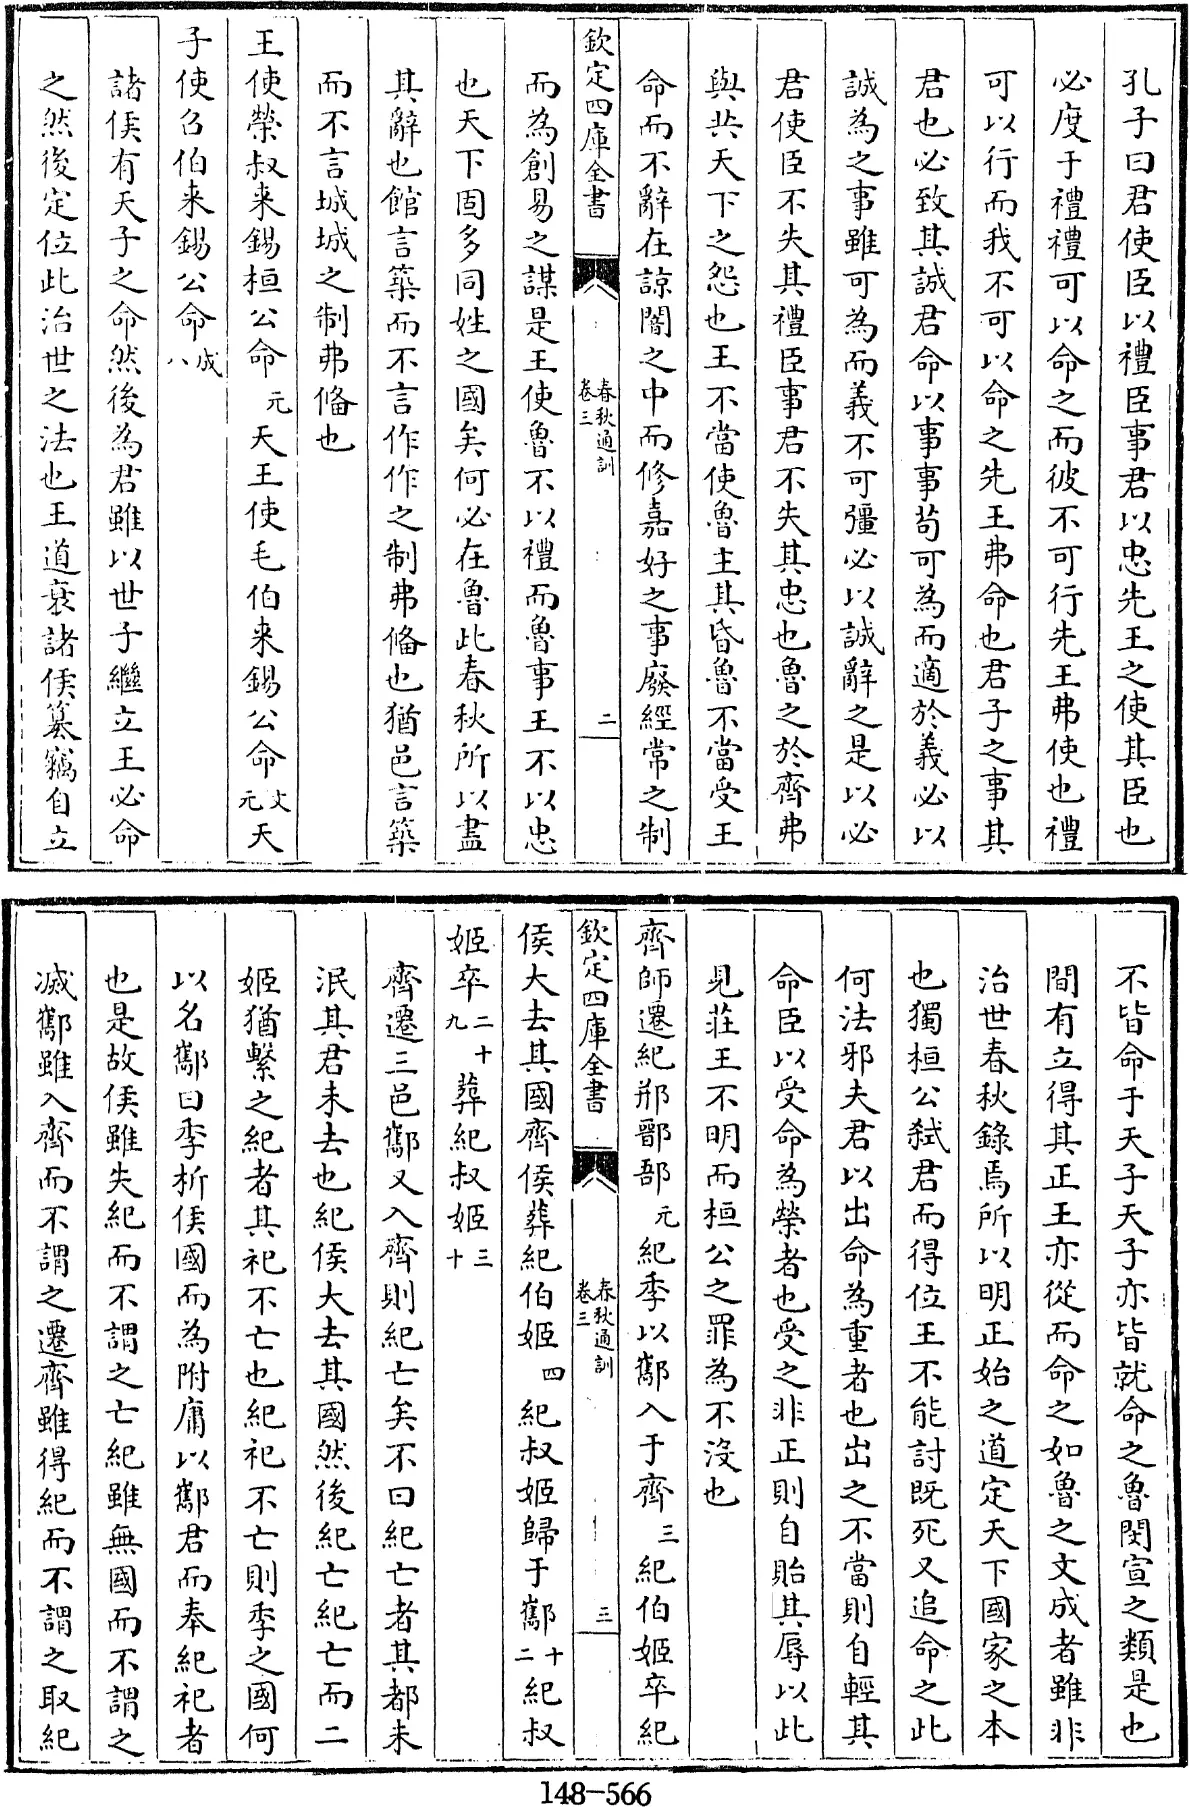 孔子曰君使臣以禮臣事君以忠先王之使其臣也
必度于禮禮可以命之而彼不可行先王弗使也禮
可以行而我不可以命之先王弗命也君子之事其
君也必致其誠君命以事事茍可為而適於義必以
誠為之事雖可為而義不可彊必以誠辭之是以必
君使臣不失其禮臣事君不失其忠也魯之於齊弗
與共天下之怨也王不當使魯主其昏魯不當受王
命而不辭在諒闇之中而修嘉好之事廢經常之制
欽定四庫全書
春秋通訓
卷三
二
而為創易之謀是王使魯不以禮而魯事王不以忠
也天下固多同姓之國矣何必在魯此春秋所以盡
其辭也館言築而不言作作之制弗偹也猶邑言築
而不言城城之制弗偹也
王使榮叔来錫桓公命元天王使毛伯来錫公命文元天
子使召伯来錫公命成八
諸侯有天子之命然後為君雖以世子繼立王必命
之然後定位此治世之法也王道衰諸侯簒竊自立
不皆命于天子天子亦皆就命之魯閔宣之類是也
間有立得其正王亦從而命之如魯之文成者雖非
治世春秋錄焉所以明正始之道定天下國家之本
也獨桓公弒君而得位王不能討既死又追命之此
何法邪夫君以出命為重者也出之不當則自輕其
命臣以受命為榮者也受之非正則自貽其辱以此
見莊王不明而桓公之罪為不沒也
齊師遷紀郱鄑郚元紀季以酅入于齊三紀伯姬卒紀
欽定四庫全書
春秋通訓
卷三
三
侯大去其國齊侯葬紀伯姬四紀叔姬歸于酅十二紀叔
姬卒二十九葬紀叔姬三十
齊遷三邑酅又入齊則紀亡矣不曰紀亡者其都未
泯其君未去也紀侯大去其國然後紀亡紀亡而二
姬猶繫之紀者其祀不亡也紀祀不亡則季之國何
以名酅曰季析侯國而為附庸以酅君而奉紀祀者
也是故侯雖失紀而不謂之亡紀雖無國而不謂之
滅酅雖入齊而不謂之遷齊雖得紀而不謂之取紀
148-566